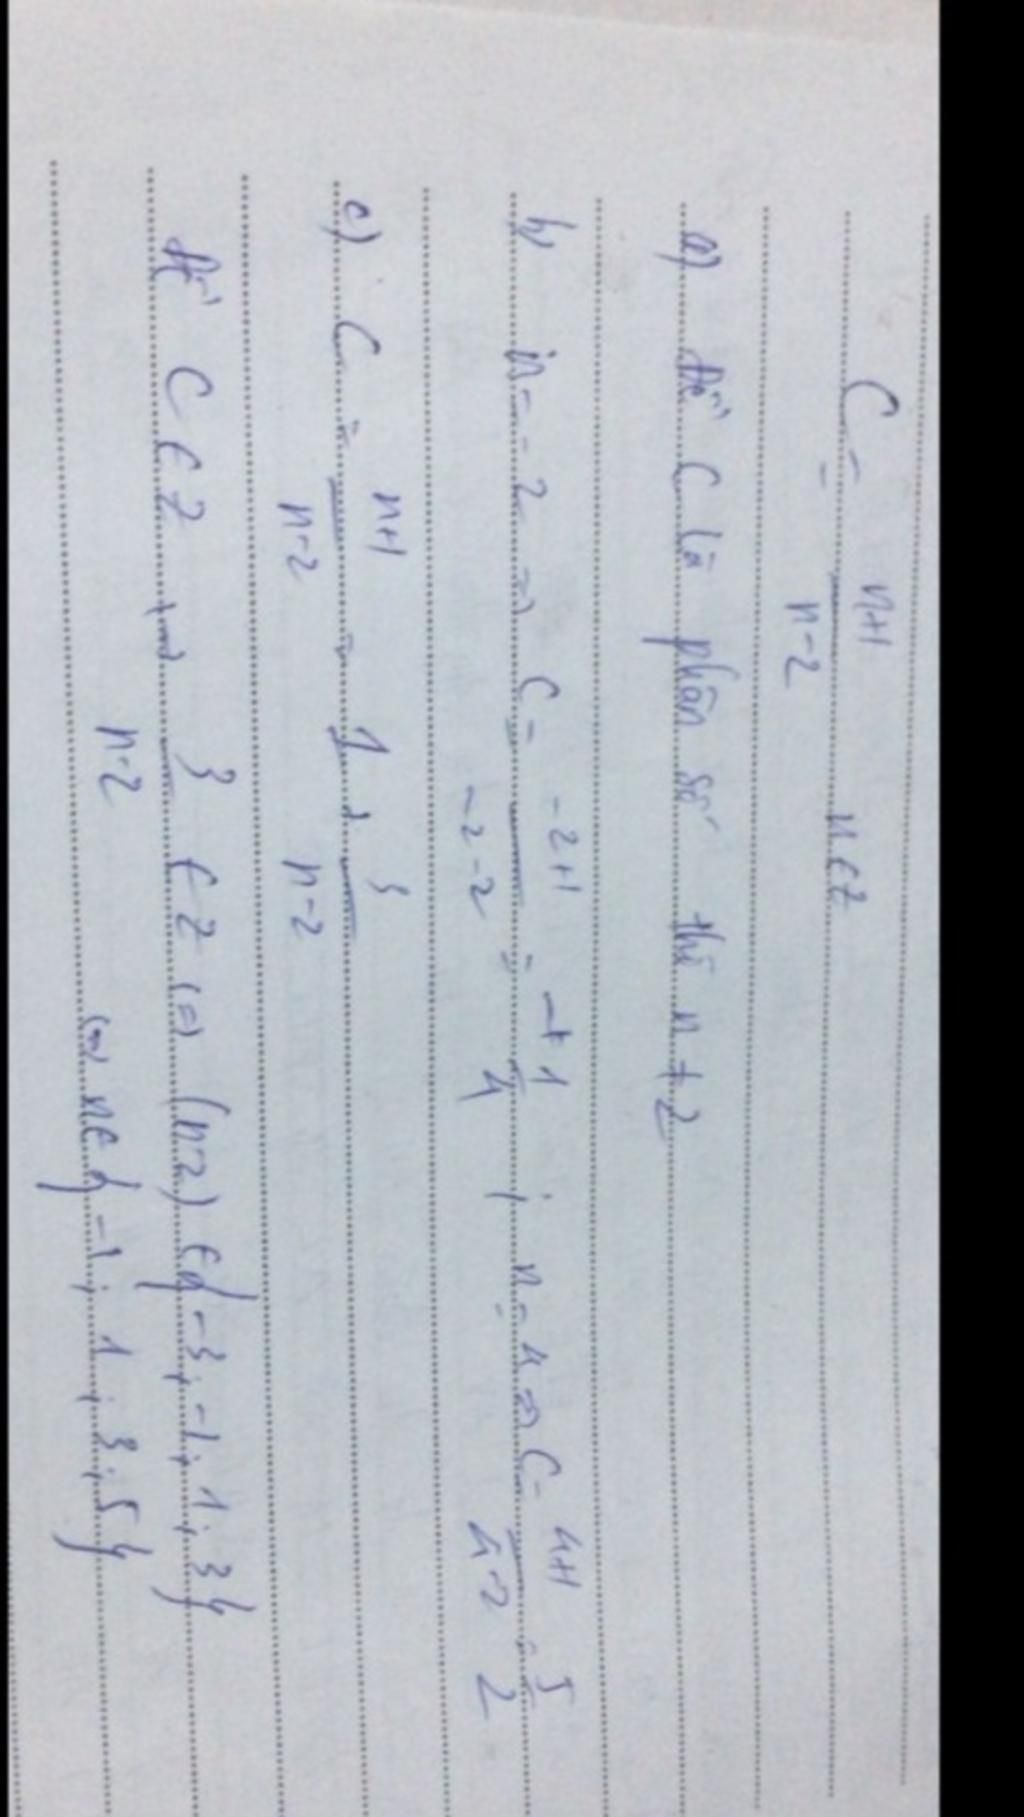 C = n+1/n-2 n∈Z
a) Để C là phân số thì n ≠ 2
b) n=-2 => C = -2+1/-2-2 = 1/4 ; n=4 => C = 4+1/4-2 = 5/2
c) C = n+1/n-2 = 1 + 3/n-2
Để C ∈ Z <=> 3/n-2 ∈ Z <=> (n-2) ∈ {-3; -1; 1; 3}
<=> n∈{-1; 1; 3; 5}